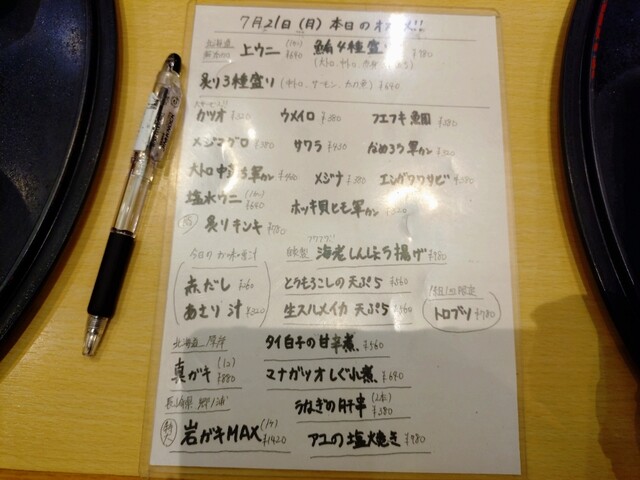 7月21日(月)本日のオススメ!!
北海道
上ウニ (1カン) ¥640
鮪4種盛り ¥980
炙り3種盛り (中トロ、サーモン、カカ身) ¥640
カツオ ¥320 ウメイロ ¥380 フエフキ鯛 ¥380
メジマグロ ¥380 サワラ ¥430 なめろう軍カン ¥320
大トロ中落ち軍カン ¥460 メジナ ¥380 エンガワワサビ ¥380
塩水ウニ ¥640 ホッキ貝ヒモ軍カン
炙りチンキ ¥780
今日のかわり汁
赤だし ¥260
あさり汁 ¥320
自家製 フワフワ!! 海老しんじょう揚げ ¥780
とうもろこしの天ぷら ¥560
生スルメイカ天ぷら ¥560
1日1組限定
トロブツ ¥780
北海道 厚岸
真ガキ (1コ) ¥880
長崎県
特大 岩ガキMAX (1ケ) ¥1420
タイ白子の甘辛煮 ¥560
マナガツオしぐれ煮 ¥690
うなぎの肝串 (2本) ¥380
アユの塩焼き ¥980